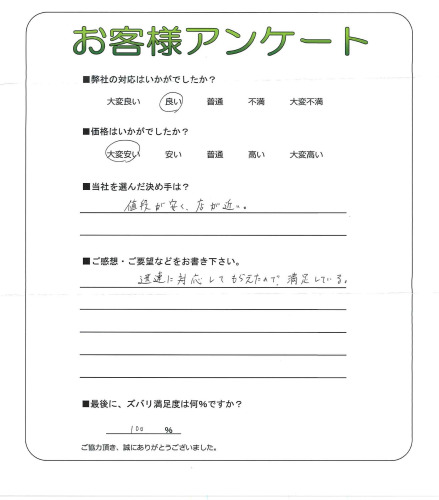 お客様アンケート
■弊社の対応はいかがでしたか?
大変良い 良い 普通 不満 大変不満
■価格はいかがでしたか?
大変安い 安い 普通 高い 大変高い
■当社を選んだ決め手は?
値段が安く、店が近い。
■ご感想・ご要望などをお書き下さい。
迅速に対応してもらえたので、満足している。
■最後に、ズバリ満足度は何%ですか?
100 %
ご協力頂き、誠にありがとうございました。